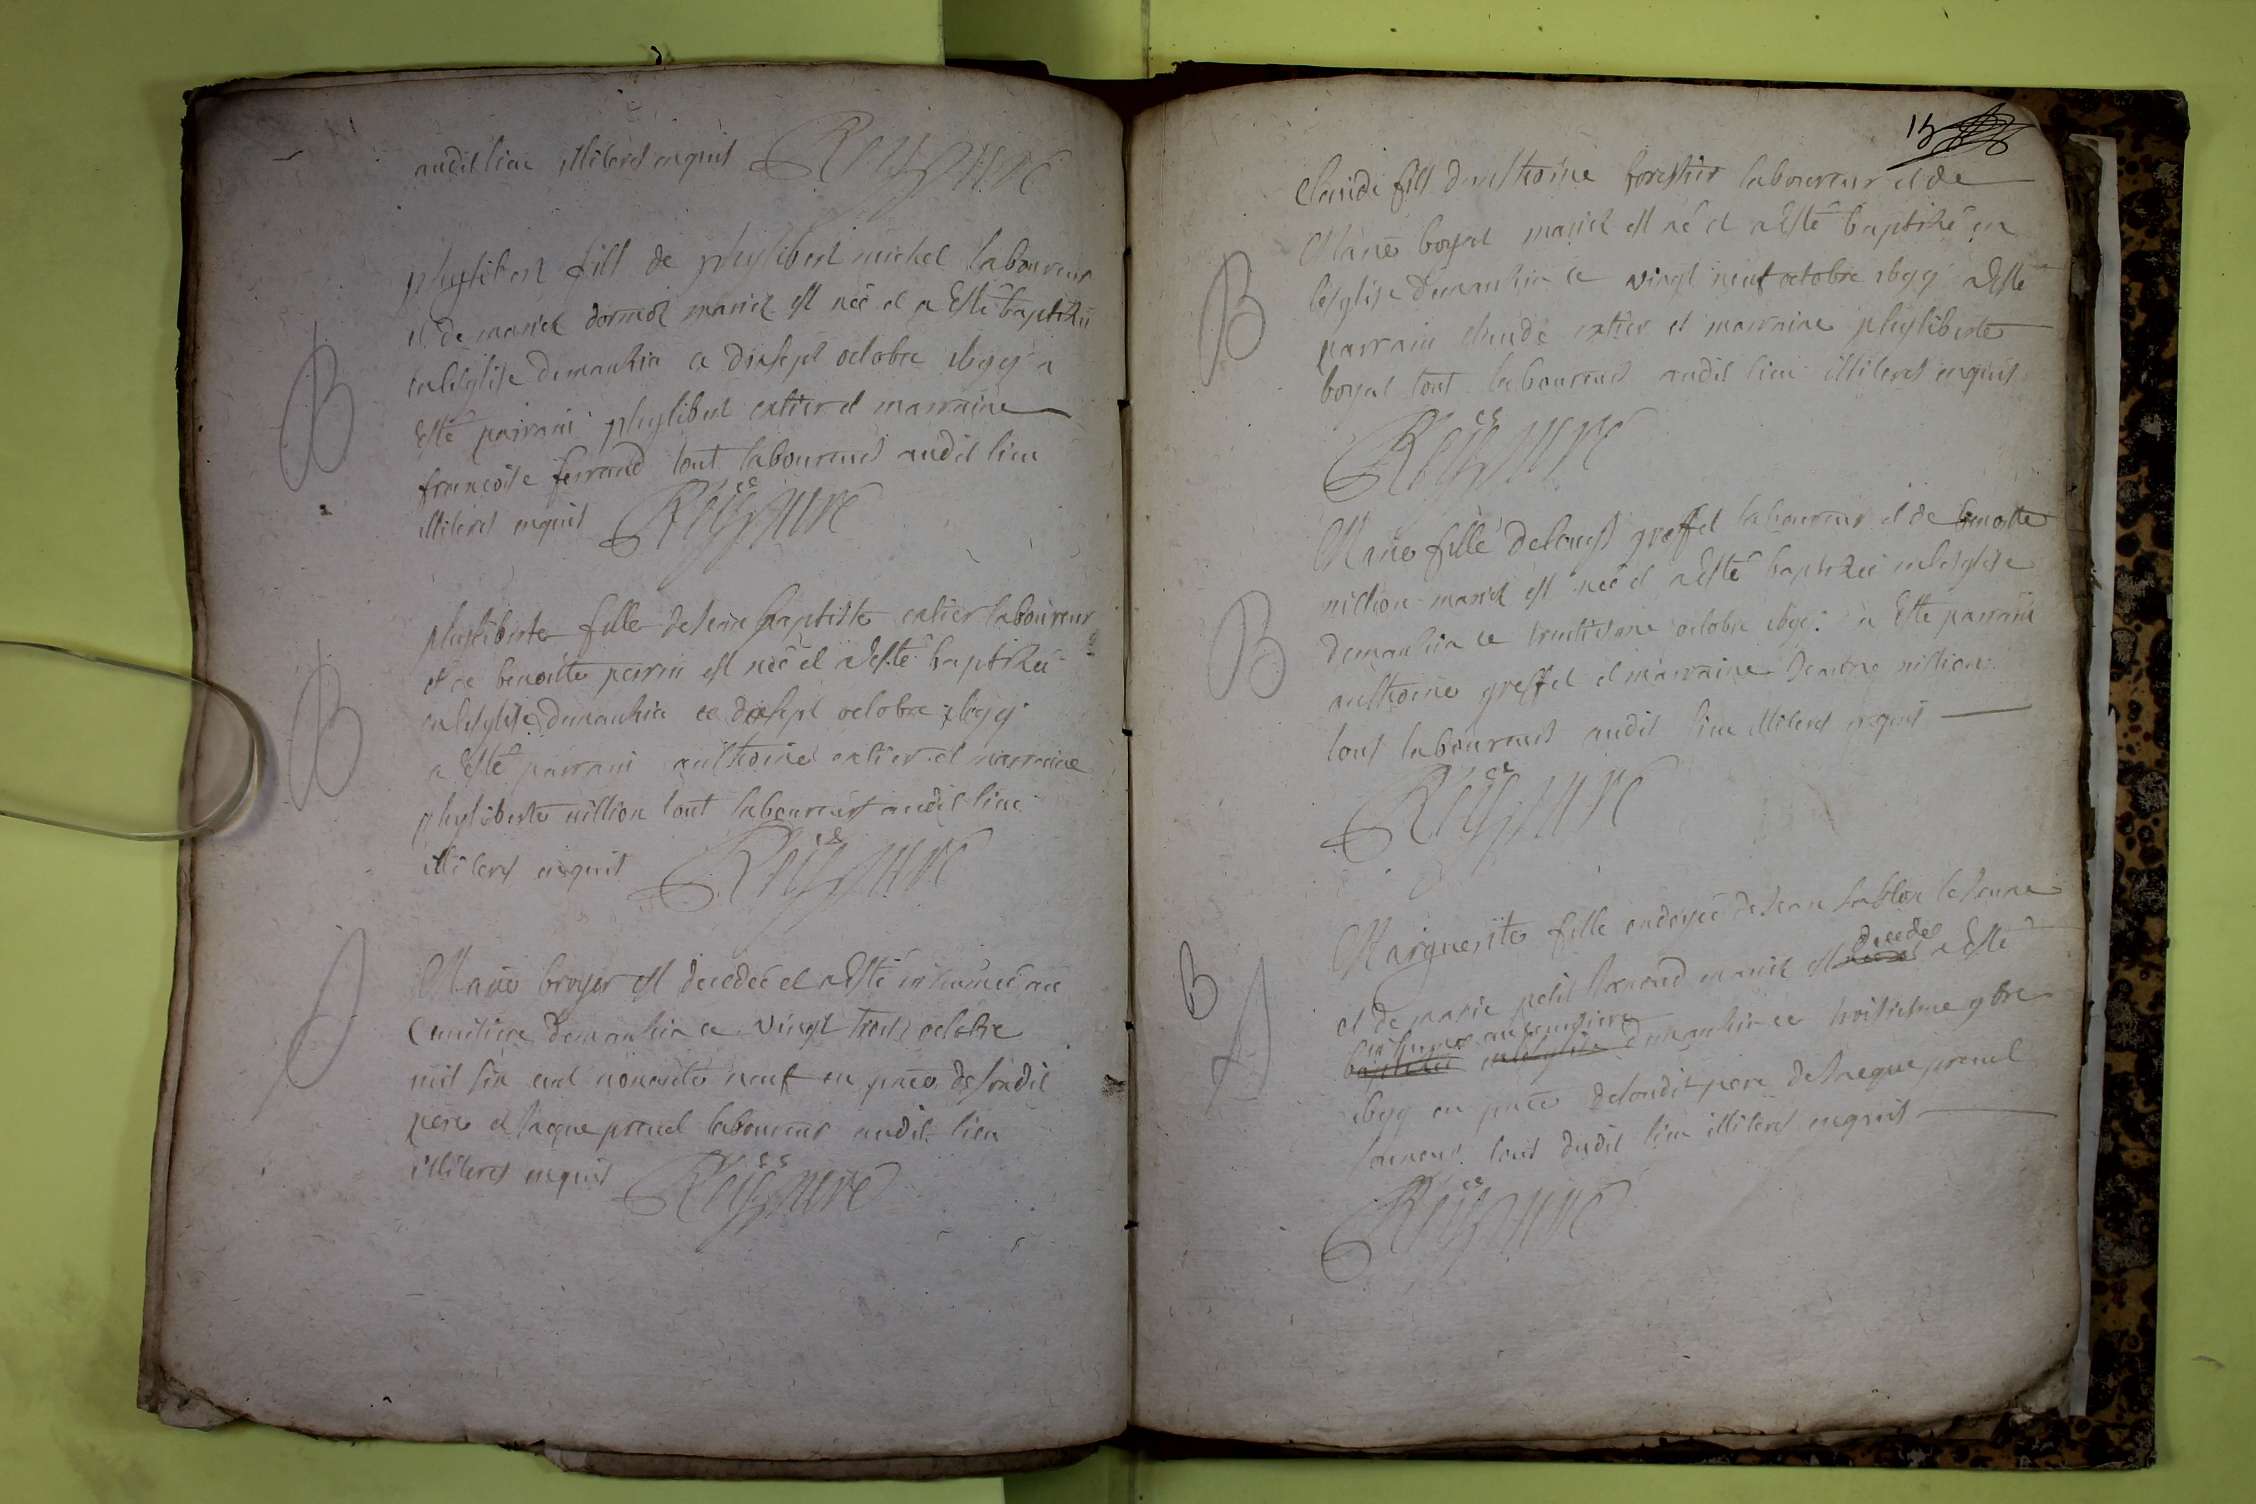 audit lieu illiteres enquis
B
phylibert fill de phylibert michel laboureur
et de mariez est néé et a Esté baptizéé
en lesglise demanhia ce disept octobre 1699 a
Esté parrain phylibert catier et marraine
francoise ferrand tout laboureurs audit lieu
illiteres enquis
B
phyliberte fille de Jean baptiste catier laboureur
et de benoitte perrin est néé et a Esté baptizéé
en lesglise demanhia ce disept octobre 1699
a Esté parrain anthoine catier et marraine
phyliberte nillion tout laboureurs audit lieu
illiteres enquis
Marie broyer est decedéé et a Esté inhuméé au
cemitiere demanhia ce vingt trois octobre
mil six cent nonante neuf en pnce de sondit
pere et Jaque prevel laboureur audit lieu
illiteres enquis
15
B
Claude fill d'anthoine forestier laboureur et de
Marie boyat mariez est né et a Esté baptizé en
lesglise demanhia ce vingt neuf octobre 1699 a Esté
parrain claude catier et marraine phyliberte
boyat tout laboureurs audit lieu illiteres enquis
B
Marie fille de louys greffet laboureur et de benoitte
nillion mariez est néé et a Esté baptizéé en lesglise
demanhia ce trentiesme octobre 1699 a Esté parrain
anthoine greffet et marraine nillion
tous laboureurs audit lieu illiteres enquis
B
Marguerite fille ondoyéé de Jean le Jeune
et de marie petit mariez est decedéé a Esté
inhuméé au cemitiere
baptizéé en lesglise demanhia ce troisiesme 9bre
1699 en pnce de sondit pere de Jaque prevel
tous dudit lieu illiteres enquis